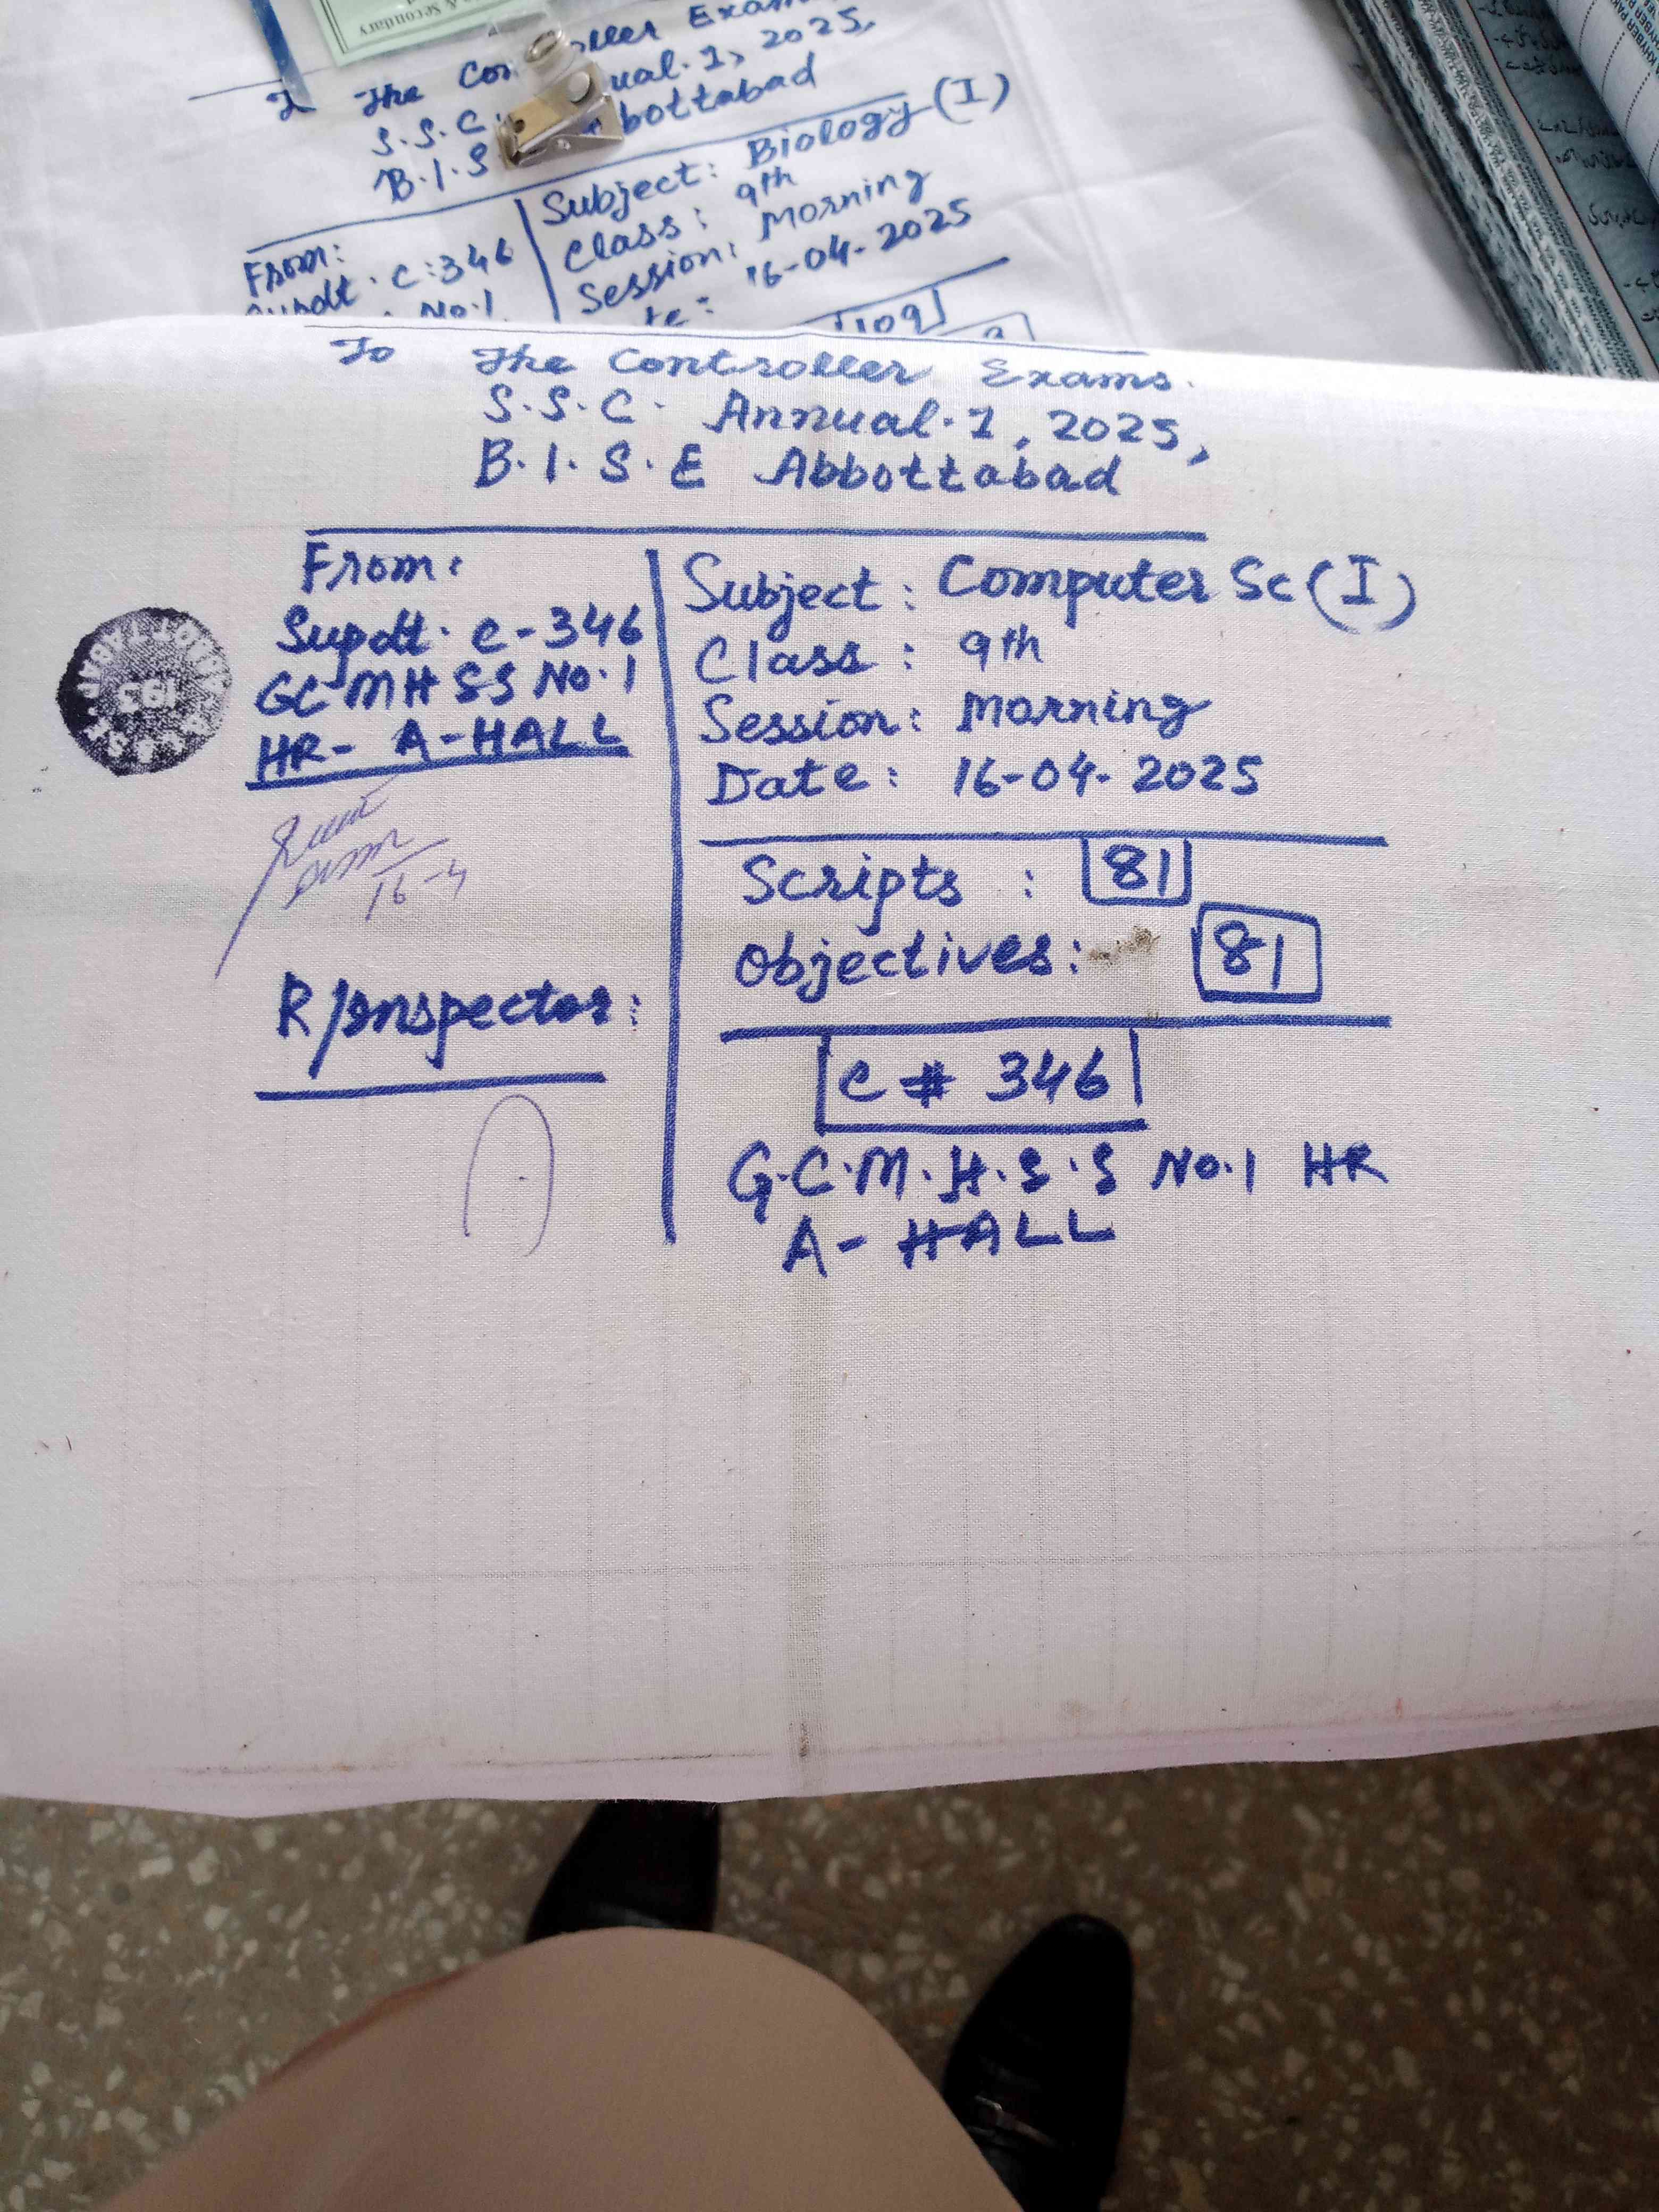 & Secondary
To The Con oller Exam
S.S.C. ual-1, 2025,
B.I.S bottabad
From:
Supdt. C:346
No.1
Subject: Biology (I)
Class: 9th
Session: Morning
te: 16-04-2025
109
To The Controller Exams.
S.S.C. Annual-1, 2025,
B.I.S.E Abbottabad
From:
Supdt. C-346
GCMHSS No.1
HR- A-HALL
16-4
R/Inspector:
Subject: Computer Sc (I)
Class: 9th
Session: Morning
Date: 16-04-2025
Scripts : 81
Objectives: 81
C # 346
G.C.M.H.S.S No.1 HR
A- HALL
193
KHYBER PAK